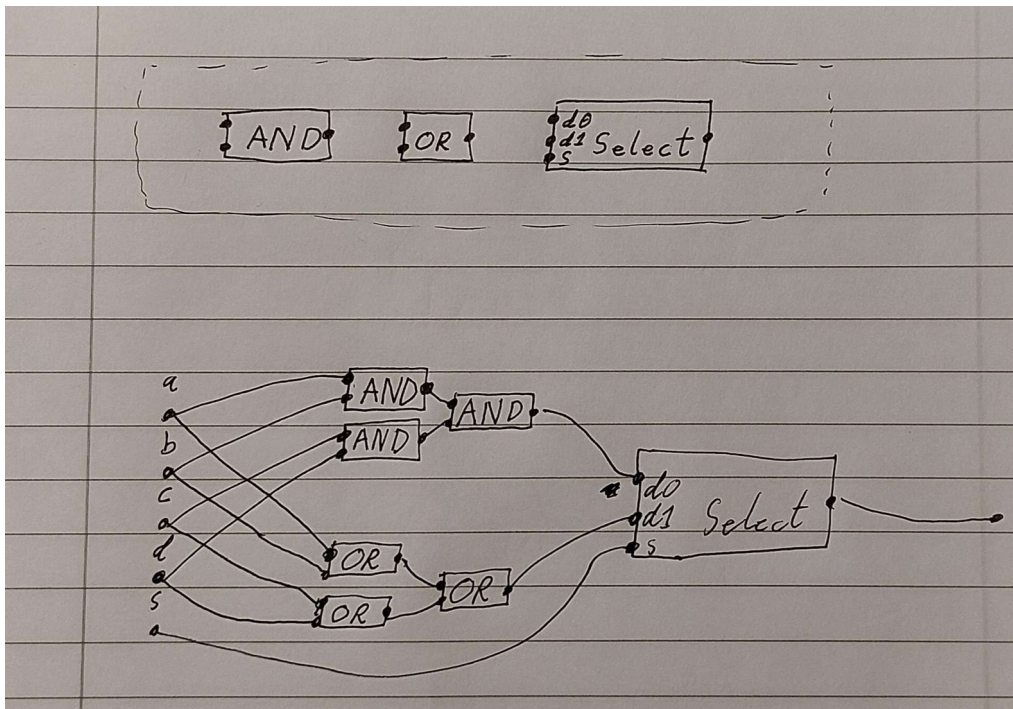 AND
OR
d0
d1
s
Select
a
b
c
d
s
AND
AND
AND
OR
OR
OR
d0
d1
s
Select